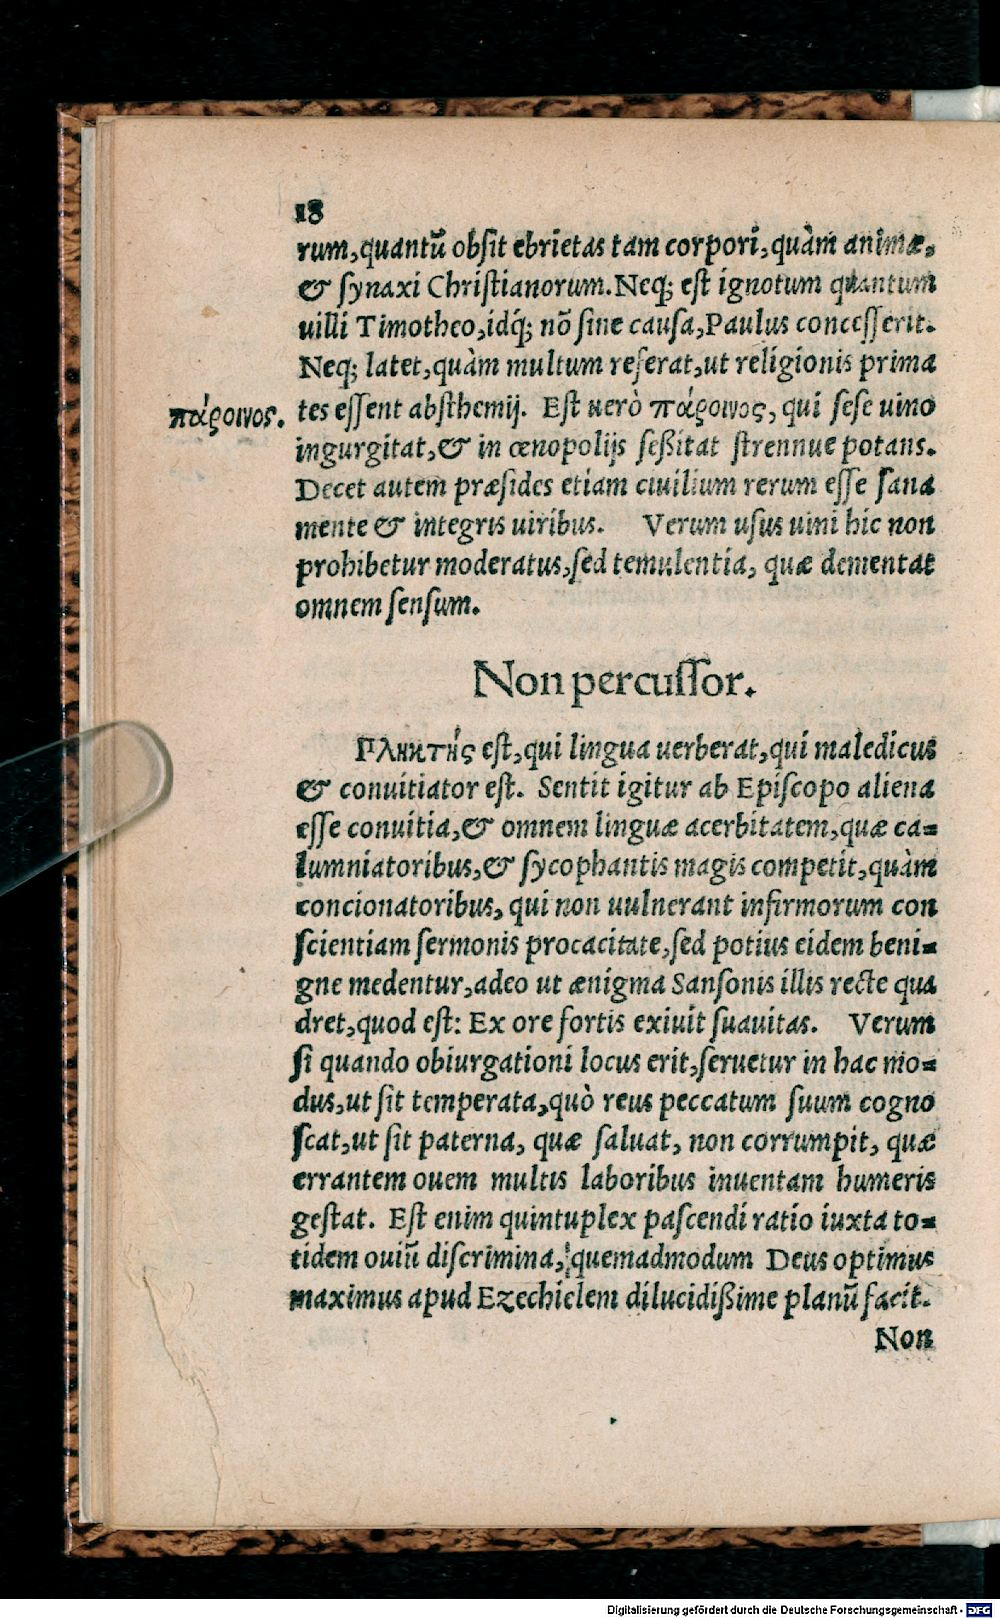 18
rum, quantũ obſit ebrietas tam corpori, quàm animæ,
& ſynaxi Chriſtianorum. Neq; eſt ignotum quantum
uilli Timotheo, idq́; nõ ſine cauſa, Paulus conceſſerit.
Neq; latet, quàm multum referat, ut religionis prima
πάροινος.
tes eſſent abſthemij. Eſt uerò πάροινος, qui ſeſe uino
ingurgitat, & in œnopolijs ſeßitat ſtrennue potans.
Decet autem præſides etiam ciuilium rerum eſſe ſana
mente & integris uiribus. Verum uſus uini hic non
prohibetur moderatus, ſed temulentia, quæ dementat
omnem ſenſum.
Non percuſſor.
Πληκτής eſt, qui lingua uerberat, qui maledicus
& conuitiator eſt. Sentit igitur ab Epiſcopo aliena
eſſe conuitia, & omnem linguæ acerbitatem, quæ ca=
lumniatoribus, & ſycophantis magis competit, quàm
concionatoribus, qui non uulnerant infirmorum con
ſcientiam ſermonis procacitate, ſed potius eidem beni=
gne medentur, adeo ut ænigma Sanſonis illis recte qua
dret, quod eſt: Ex ore fortis exiuit ſuauitas. Verum
ſi quando obiurgationi locus erit, ſeruetur in hac mo=
dus, ut ſit temperata, quò reus peccatum ſuum cogno
ſcat, ut ſit paterna, quæ ſaluat, non corrumpit, quæ
errantem ouem multis laboribus inuentam humeris
geſtat. Eſt enim quintuplex paſcendi ratio iuxta to=
tidem ouiũ diſcrimina, quemadmodum Deus optimus
maximus apud Ezechielem dilucidißime planũ facit.
Non
Digitalisierung gefördert durch die Deutsche Forschungsgemeinschaft - DFG